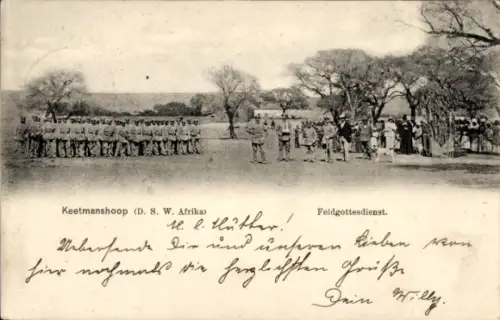 Keetmanshoop (D. S. W. Afrika) Feldgottesdienst.
M. l. Mütter!
Uebersende Dir und unseren Lieben von
hier nochmals die herzlichsten Grüße.
Dein Willy.